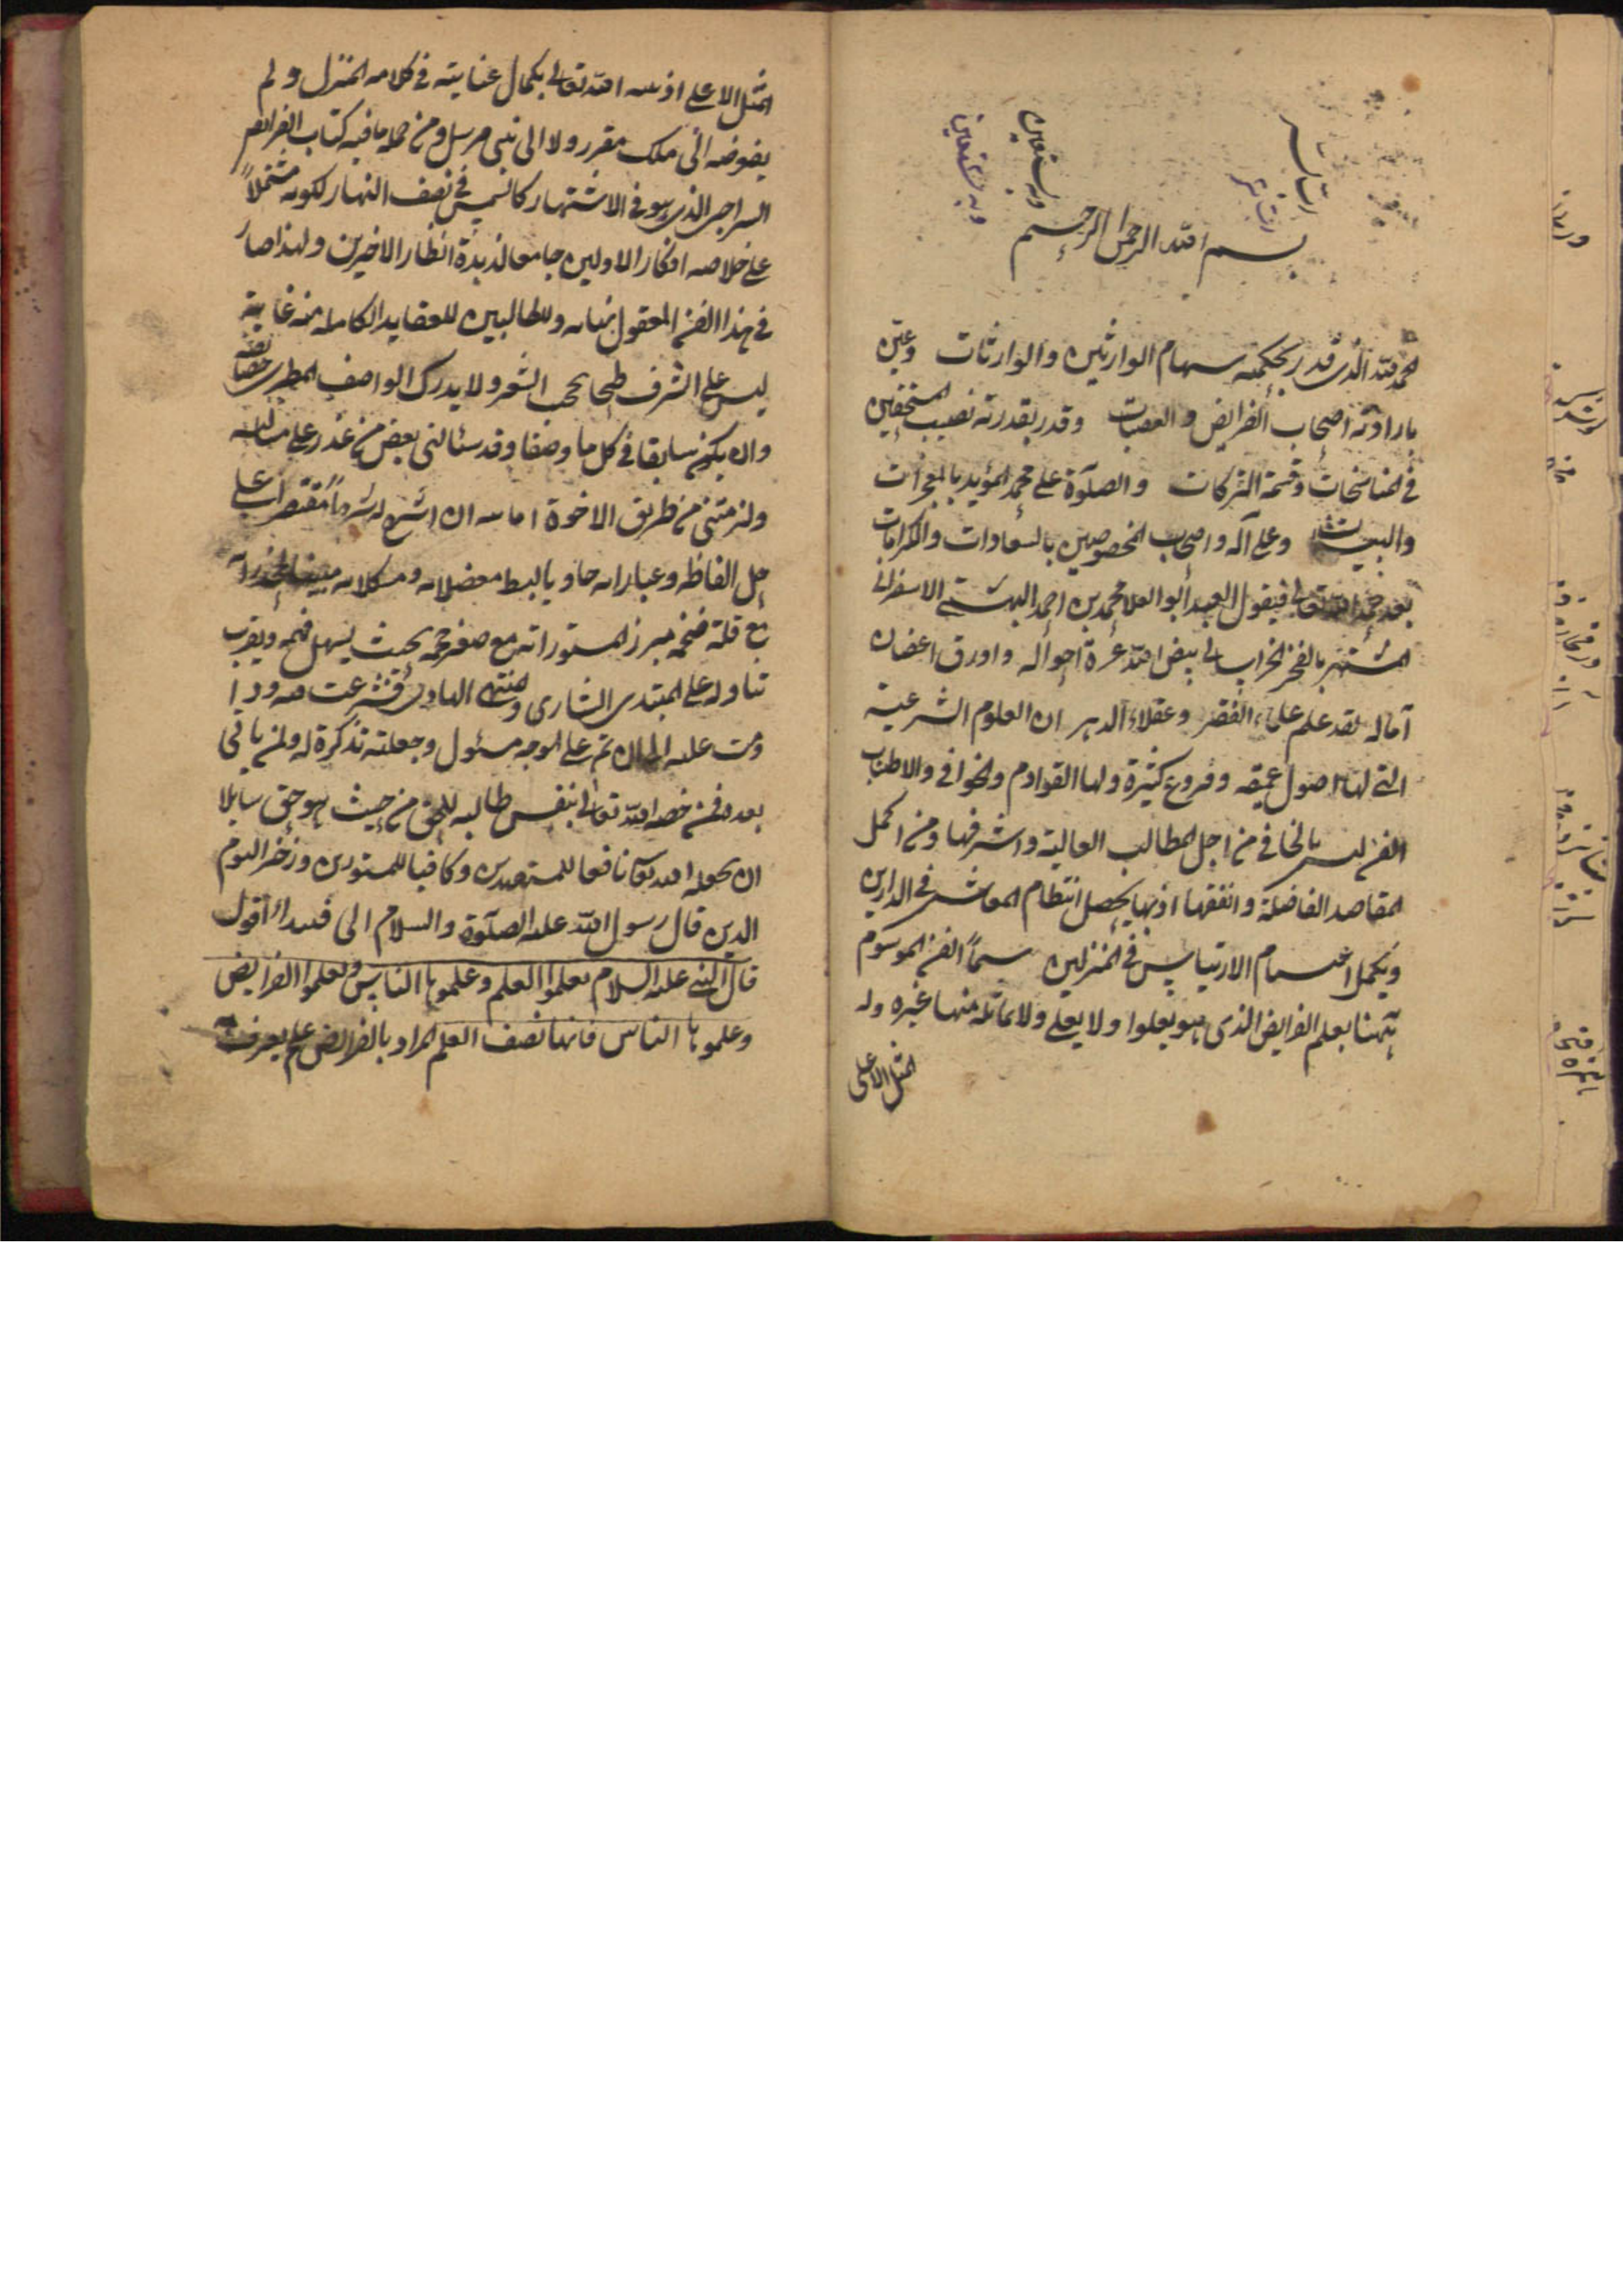 بسم الله الرحمن الرحيم
وبه نستعين
وبه نستعين
الحمد لله الذى قدر بحكمته سهام الوارثين والوارثات وعين
بارادته اصحاب الفرايض والعصبات وقدر بقدرته نصيب المستحقين
فى المناسخات وقسمة التركات والصلوة على محمد المؤيد بالمعجزات
والبينات وعلى آله واصحابه المخصوصين بالسعادات والكرامات
بعد حمد الله تعالى فيقول العبد ابو العلا محمد بن احمد البهشتى الاسفراينى
المشتهر بالفخر الخراسانى بيض الله غرة احواله واورق اغصان
آماله لقد علم علماء الفقر وعقلاء الدهر ان العلوم الشرعية
التى لها اصول عميقه وفروع كثيرة ولها القوادم والخوافى والاطناب
الفن ليس بالخافى من اجل المطالب العالية واشرفها ومن اكمل
المقاصد الفاضلة وانفقها اذ بها يحصل انتظام المعاش فى الدارين
ويكمل اغتنام الارتياش فى المنزلين سيما الفن الموسوم
ههنا بعلم الفرايض الذى هو يعلوا ولا يعلى ولا يماثله منها غيره وله
المثل الاعلى
المثل الاعلى اذ بينه الله تعالى بكمال عنايته فى كلامه المنزل ولم
يفوضه الى ملك مقرر ولا الى نبى مرسل ومن جمله ما فيه كتاب الفرايض
السراجى الذى هو فى الاشتهار كالشمس فى نصف النهار لكونه مشتملاً
على خلاصه افكار الاولين جامعا لزبدة انظار الاخيرين ولهذا صار
فى هذا الفن المعقول بمنابه وللطالبين للعقايد الكامله منه غاية
ليس على الشرف طبحا بحب الشعر ولا يدرك الواصف المطرى خصائصه
وان يكن سابقا فى كل ما وصفا وقد سئالنى بعض من غدر على مسالبه
ولزمتنى من طريق الاخوة اجابته ان اشرح له شرحاً مقتصرا على
حل الفاظه وعباراته حاويا لبسط معضلاته ومشكلاته مبينا
مع قلة ضخمه مبرز المستوراته مع صغر حجمه بحيث يسهل فهمه ويقرب
تناوله على المبتدى الشارى والمنتهى الهادى فشرعت
ودمت عليه الى ان تم على الوجه مسئول وجعلته تذكرة له ولمن ياتى
بعده فمن خصه الله تعالى بنفس طالبه للحق من حيث هو حق سايلا
ان يجعله الله تعالى نافعا للمسترشدين وكافيا للمستورين وزخر اليوم
الدين قال رسول الله عليه الصلوة والسلام الى اقول
قال النبى عليه السلام تعلموا العلم وعلموها الناس وتعلموا الفرايض
وعلموها الناس فانها نصف العلم المراد بالفرايض علم يعرف به